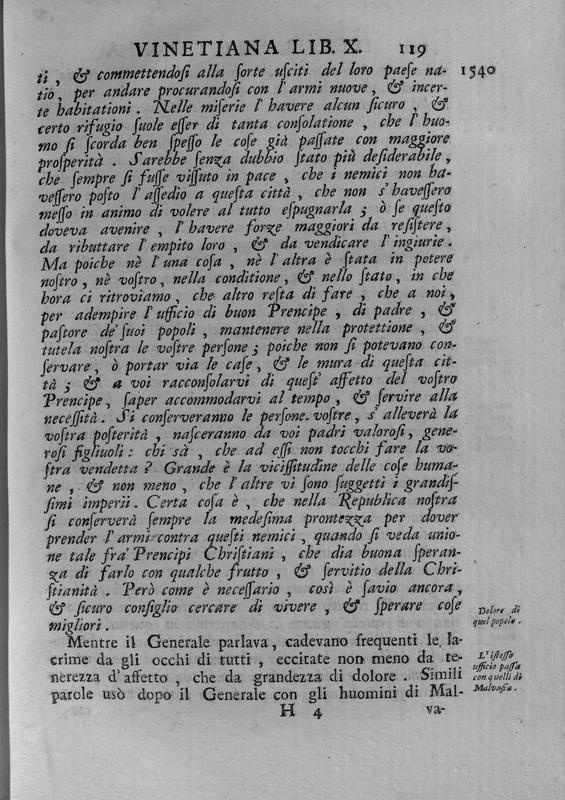 VINETIANA LIB. X. 119
ti, & commettendoſi alla ſorte uſciti del loro paeſe na- 1540
tio, per andare procurandoſi con l'armi nuove, & incer-
te habitationi. Nelle miſerie l'havere alcun ſicuro, &
certo rifugio ſuole eſſer di tanta conſolatione, che l'huo-
mo ſi ſcorda ben ſpeſſo le coſe già paſſate con maggiore
proſperità. Sarebbe ſenza dubbio ſtato più deſiderabile,
che ſempre ſi fuſſe viſſuto in pace, che i nemici non ha-
veſſero poſto l'aſſedio a queſta città, che non s'haveſſero
meſſo in animo di volere al tutto eſpugnarla; ò ſe queſto
doveva avenire, l'havere forze maggiori da reſiſtere,
da ributtare l'empito loro, & da vendicare l'ingiurie.
Ma poiche nè l'una coſa, nè l'altra è ſtata in potere
noſtro, nè voſtro, nella conditione, & nello ſtato, in che
hora ci ritroviamo, che altro reſta di fare, che a noi,
per adempire l'ufficio di buon Prencipe, di padre, &
paſtore de' ſuoi popoli, mantenere nella protettione, &
tutela noſtra le voſtre perſone; poiche non ſi potevano con-
ſervare, ò portar via le caſe, & le mura di queſta cit-
tà; & a voi racconſolarvi di queſt' affetto del voſtro
Prencipe, ſaper accommodarvi al tempo, & ſervire alla
neceſſità. Si conſerveranno le perſone voſtre, s'alleverà la
voſtra poſterità, naſceranno da voi padri valoroſi, gene-
roſi figliuoli: chi sà, che ad eſſi non tocchi fare la vo-
ſtra vendetta? Grande è la viciſſitudine delle coſe huma-
ne, & non meno, che l'altre vi ſono ſuggetti i grandiſ-
ſimi imperii. Certa coſa è, che nella Republica noſtra
ſi conſerverà ſempre la medeſima prontezza per dover
prender l'armi contra queſti nemici, quando ſi veda unio-
ne tale fra' Prencipi Chriſtiani, che dia buona ſperan-
za di farlo con qualche frutto, & ſervitio della Chri-
ſtianità. Però come è neceſſario, così è ſavio ancora,
& ſicuro conſiglio cercare di vivere, & ſperare coſe
migliori.
Dolore di
quel popolo.
Mentre il Generale parlava, cadevano frequenti le la-
crime da gli occhi di tutti, eccitate non meno da te-
nerezza d'affetto, che da grandezza di dolore. Simili
parole usò dopo il Generale con gli huomini di Mal-
L'iſteſſo
ufficio paſſa
con quelli di
Malvaſia.
H 4 va-